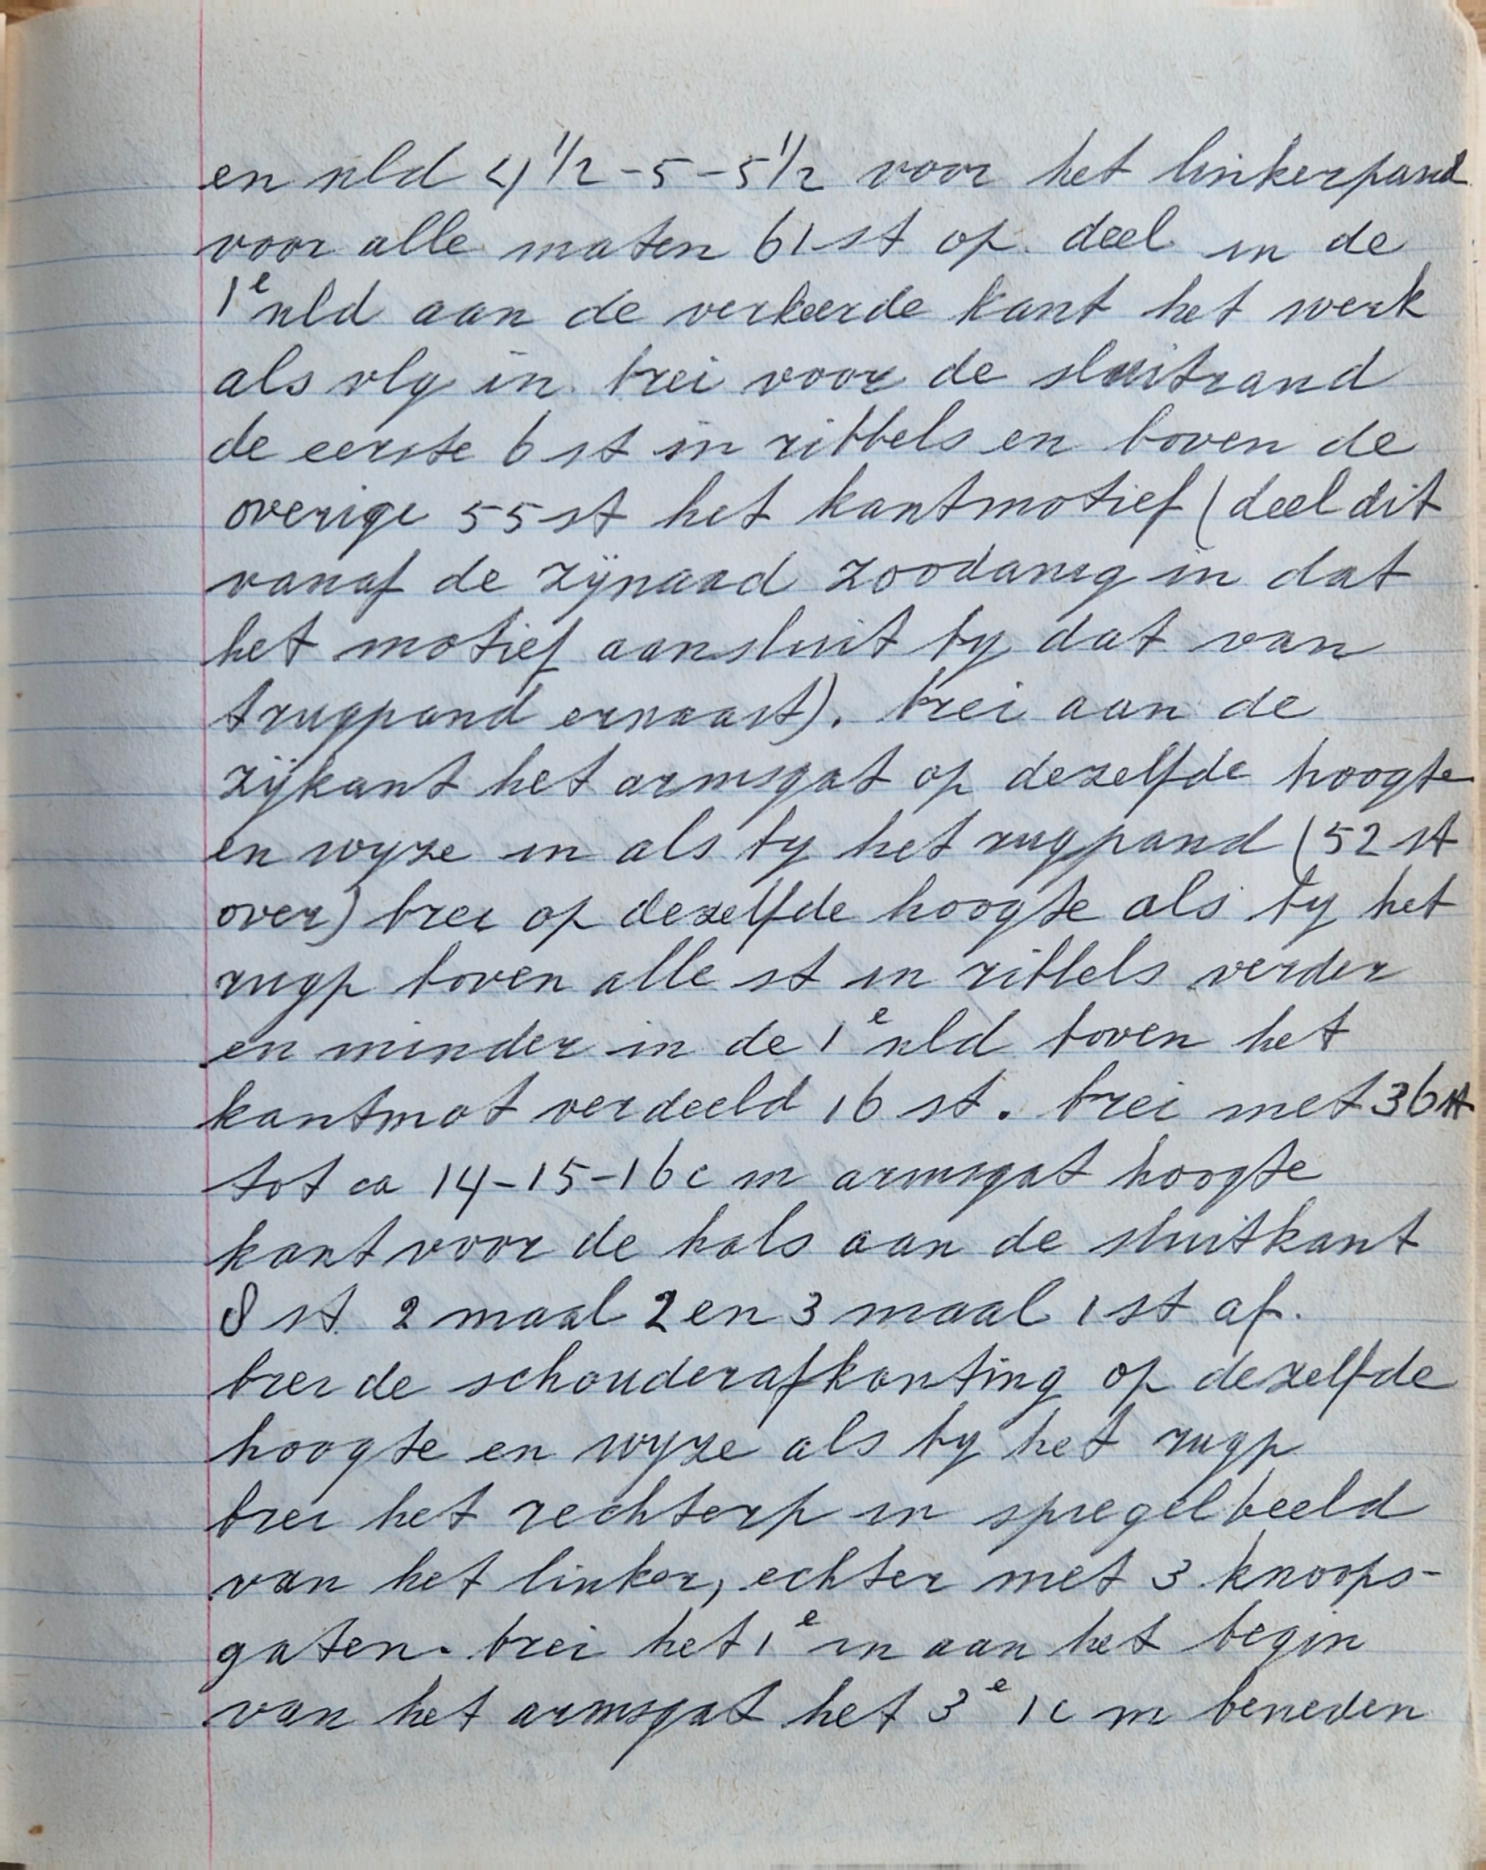 en nld 4 1/2 - 5 - 5 1/2 voor het linkerpand
voor alle maten 61 st op. deel in de
1e nld aan de verkeerde kant het werk
als vlg in. brei voor de sluitrand
de eerste 6 st in ribbels en boven de
overige 55 st het kantmotief (deel dit
vanaf de zijnaad zoodanig in dat
het motief aansluit by dat van
trugpand ernaast). brei aan de
zijkant het armsgat op dezelfde hoogte
en wyze in als by het rugpand (52 st
over) brei op dezelfde hoogte als by het
rugp boven alle st in ribbels verder
en minder in de 1e nld boven het
kantmot verdeeld 16 st. brei met 36 st
tot ca 14-15-16 cm armsgat hoogte
kant voor de hals aan de sluitkant
8 st 2 maal 2 en 3 maal 1 st af.
brei de schouderafkanting op dezelfde
hoogte en wyze als by het rugp
brei het rechterp in spiegelbeeld
van het linker, echter met 3 knoops-
gaten. brei het 1e in aan het begin
van het armsgat het 3e 1 cm beneden